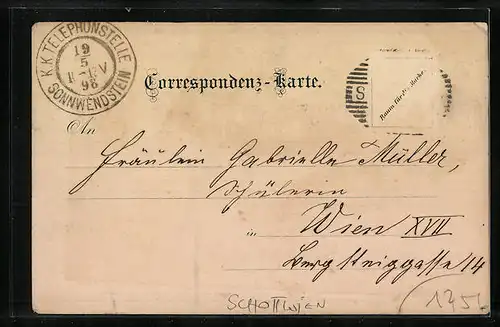 K.K. TELEPHONSTELLE
19
5
98
SONNWENDSTEIN
Correspondenz-Karte.
S
Raum für die Marke.
An
Fräulein Gabrielle Müller,
Schülerin
in Wien XVII
Bergsteiggasse 14
SCHOTTWIEN